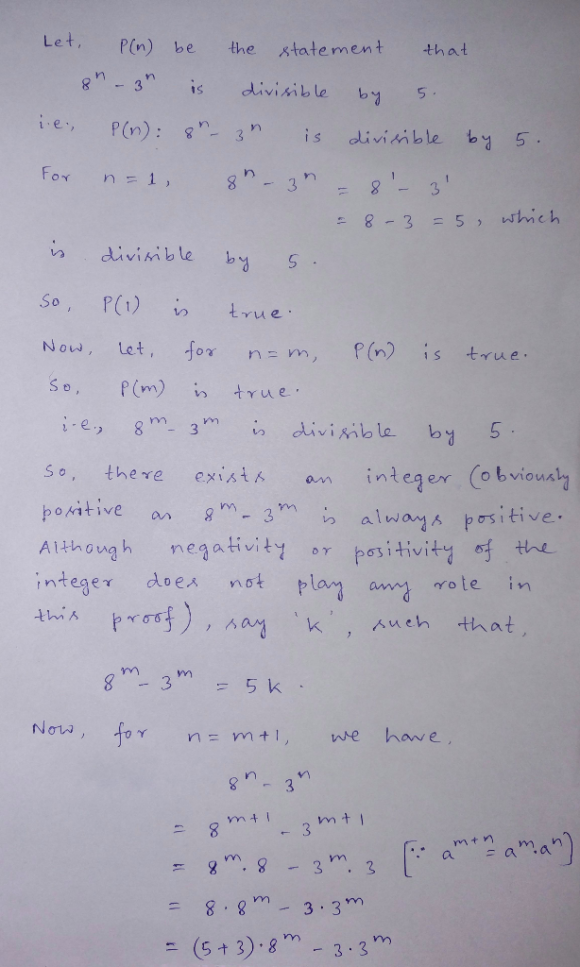 Let, P(n) be the statement that
8ⁿ - 3ⁿ is divisible by 5.
i.e., P(n): 8ⁿ - 3ⁿ is divisible by 5.
For n = 1, 8ⁿ - 3ⁿ = 8¹ - 3¹
= 8 - 3 = 5, which
is divisible by 5.
So, P(1) is true.
Now, let, for n = m, P(n) is true.
So, P(m) is true.
i.e., 8ᵐ - 3ᵐ is divisible by 5.
So, there exists an integer (obviously
positive as 8ᵐ - 3ᵐ is always positive.
Although negativity or positivity of the
integer does not play any role in
this proof), say 'k', such that,
8ᵐ - 3ᵐ = 5k.
Now, for n = m+1, we have,
8ⁿ - 3ⁿ
= 8ᵐ⁺¹ - 3ᵐ⁺¹
= 8ᵐ.8 - 3ᵐ.3 [∵ aᵐ⁺ⁿ = aᵐ.aⁿ]
= 8.8ᵐ - 3.3ᵐ
= (5+3).8ᵐ - 3.3ᵐ